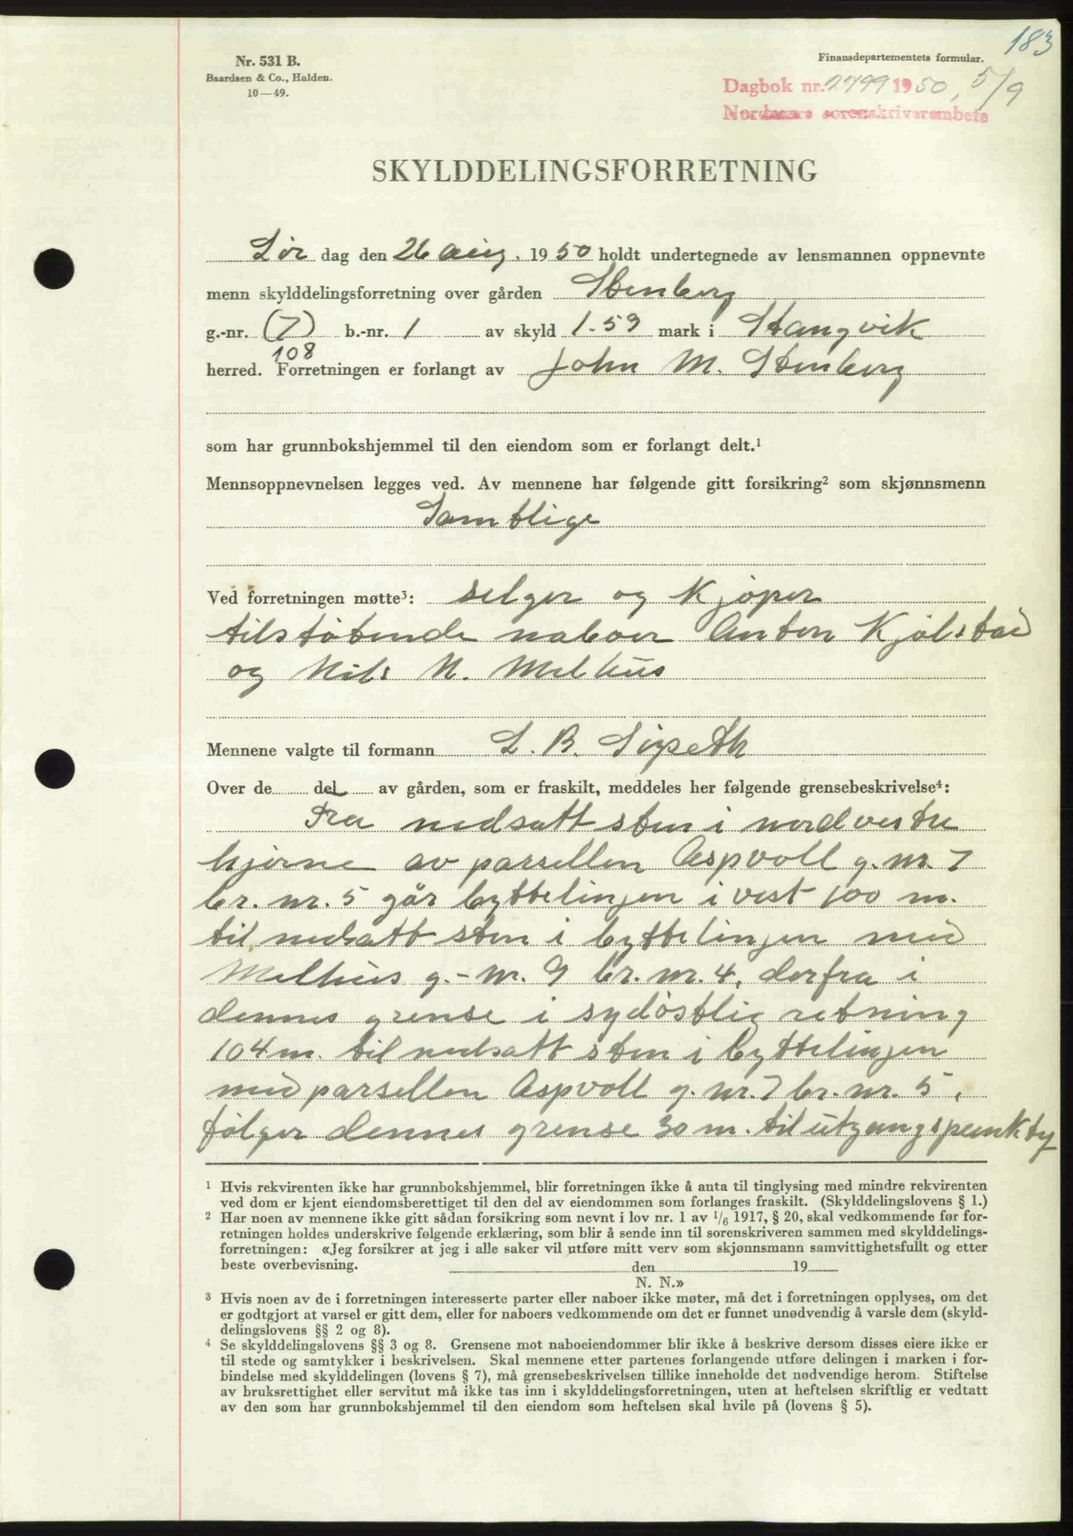 183
Nr. 531 B.
Baardsen & Co., Halden.
10—49.
Finansdepartementets formular.
Dagbok nr. 2799 1950, 5/9
Nordmøre sorenskriverembete
SKYLDDELINGSFORRETNING
Lør dag den 26 aug. 1950 holdt undertegnede av lensmannen oppnevnte
menn skylddelingsforretning over gården Stenberg
g.-nr. (7) b.-nr. 1 av skyld 1-59 mark i Stangvik
108
herred. Forretningen er forlangt av John M. Stenberg
som har grunnbokshjemmel til den eiendom som er forlangt delt.¹
Mennsoppnevnelsen legges ved. Av mennene har følgende gitt forsikring² som skjønnsmenn
Samtlige
Ved forretningen møtte³: selger og Kjøper
tilstøtende naboer Anton Kjølstad
og Nils N. Melhus
Mennene valgte til formann L. B. Sæpeth
Over de del av gården, som er fraskilt, meddeles her følgende grensebeskrivelse⁴:
Fra nedsatt sten i nordvestre
hjørne av parsellen Aspvoll g. nr. 7
br. nr. 5 går byttelinjen i vest 100 m.
til nedsatt sten i byttelinjen med
Melhus g.-nr. 9 br. nr. 4, derfra i
dennes grense i sydøstlig retning
104 m. til nedsatt sten i byttelinjen
med parsellen Aspvoll g. nr. 7 br. nr. 5,
følger dennes grense 30 m. til utgangspunktet
¹ Hvis rekvirenten ikke har grunnbokshjemmel, blir forretningen ikke å anta til tinglysing med mindre rekvirenten
ved dom er kjent eiendomsberettiget til den del av eiendommen som forlanges fraskilt. (Skylddelingslovens § 1.)
² Har noen av mennene ikke gitt sådan forsikring som nevnt i lov nr. 1 av 1/6 1917, § 20, skal vedkommende før for-
retningen holdes underskrive følgende erklæring, som blir å sende inn til sorenskriveren sammen med skylddelings-
forretningen: «Jeg forsikrer at jeg i alle saker vil utføre mitt verv som skjønnsmann samvittighetsfullt og etter
beste overbevisning. den 19
N. N.»
³ Hvis noen av de i forretningen interesserte parter eller naboer ikke møter, må det i forretningen opplyses, om det
er godtgjort at varsel er gitt dem, eller for naboers vedkommende om det er funnet unødvendig å varsle dem (skyld-
delingslovens §§ 2 og 8).
⁴ Se skylddelingslovens §§ 3 og 8. Grensene mot naboeiendommer blir ikke å beskrive dersom disses eiere ikke er
til stede og samtykker i beskrivelsen. Skal mennene etter partenes forlangende utføre delingen i marken i for-
bindelse med skylddelingen (lovens § 7), må grensebeskrivelsen tillike inneholde det nødvendige herom. Stiftelse
av bruksrettighet eller servitut må ikke tas inn i skylddelingsforretningen, uten at heftelsen skriftlig er vedtatt
av den som har grunnbokshjemmel til den eiendom som heftelsen skal hvile på (lovens § 5).